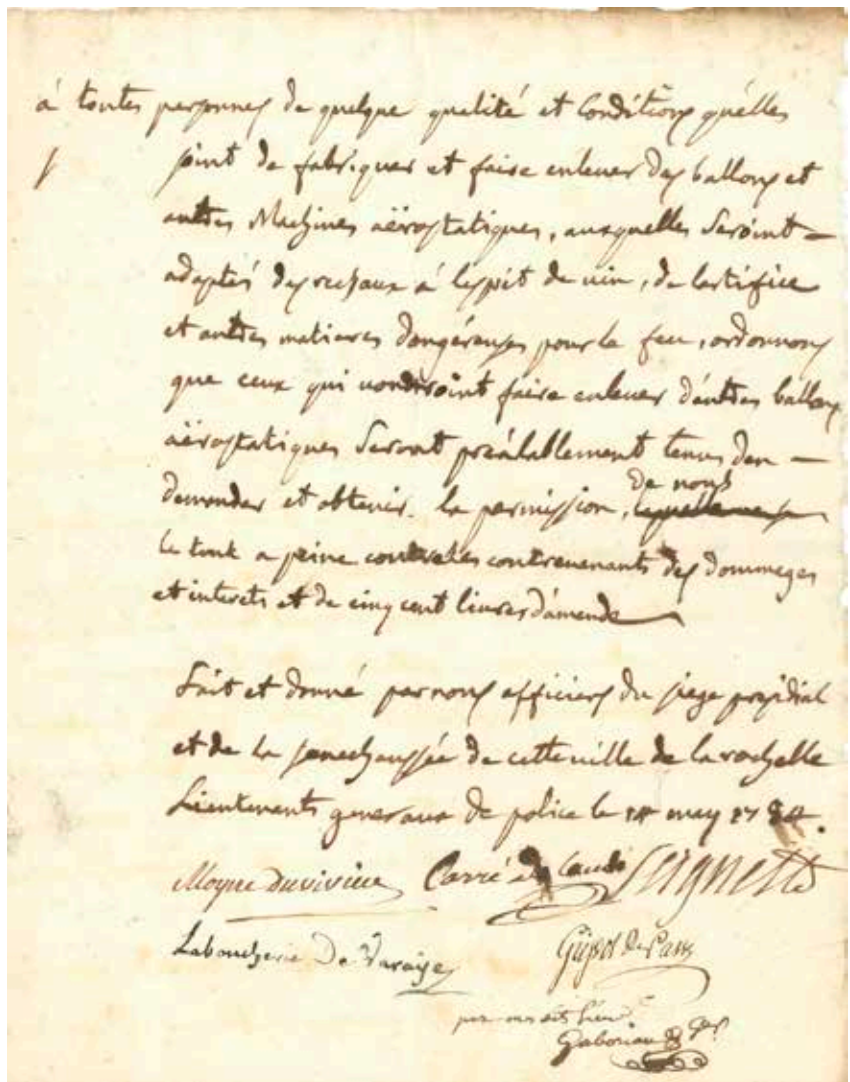 à toutes personnes de quelque qualité et Conditions qu'élles
soint de fabriquer et faire enlever des ballons et
autres Machines aërostatiques, auxquelles Seroint
adaptés des rechaux à l'esprit de vin, de l'artifice
et autres matieres dangéreuses pour le feu, ordonnons
que ceux qui voudroint faire enlever d'autres ballons
aërostatiques Seront préalablement tenus d'en
demander et obtenir la permission, de nous
le tout a peine contre les contrevenants des dommages
et interets et de cinq cent livres d'amende
Fait et donné par nous officiers du siege presidial
et de la senechaussée de cette ville de la rochelle
Lieutenants generaux de police le may 1784.
Moyne Duvivier Carré Seignette
Laboucherie De Varaise
Gaboriau